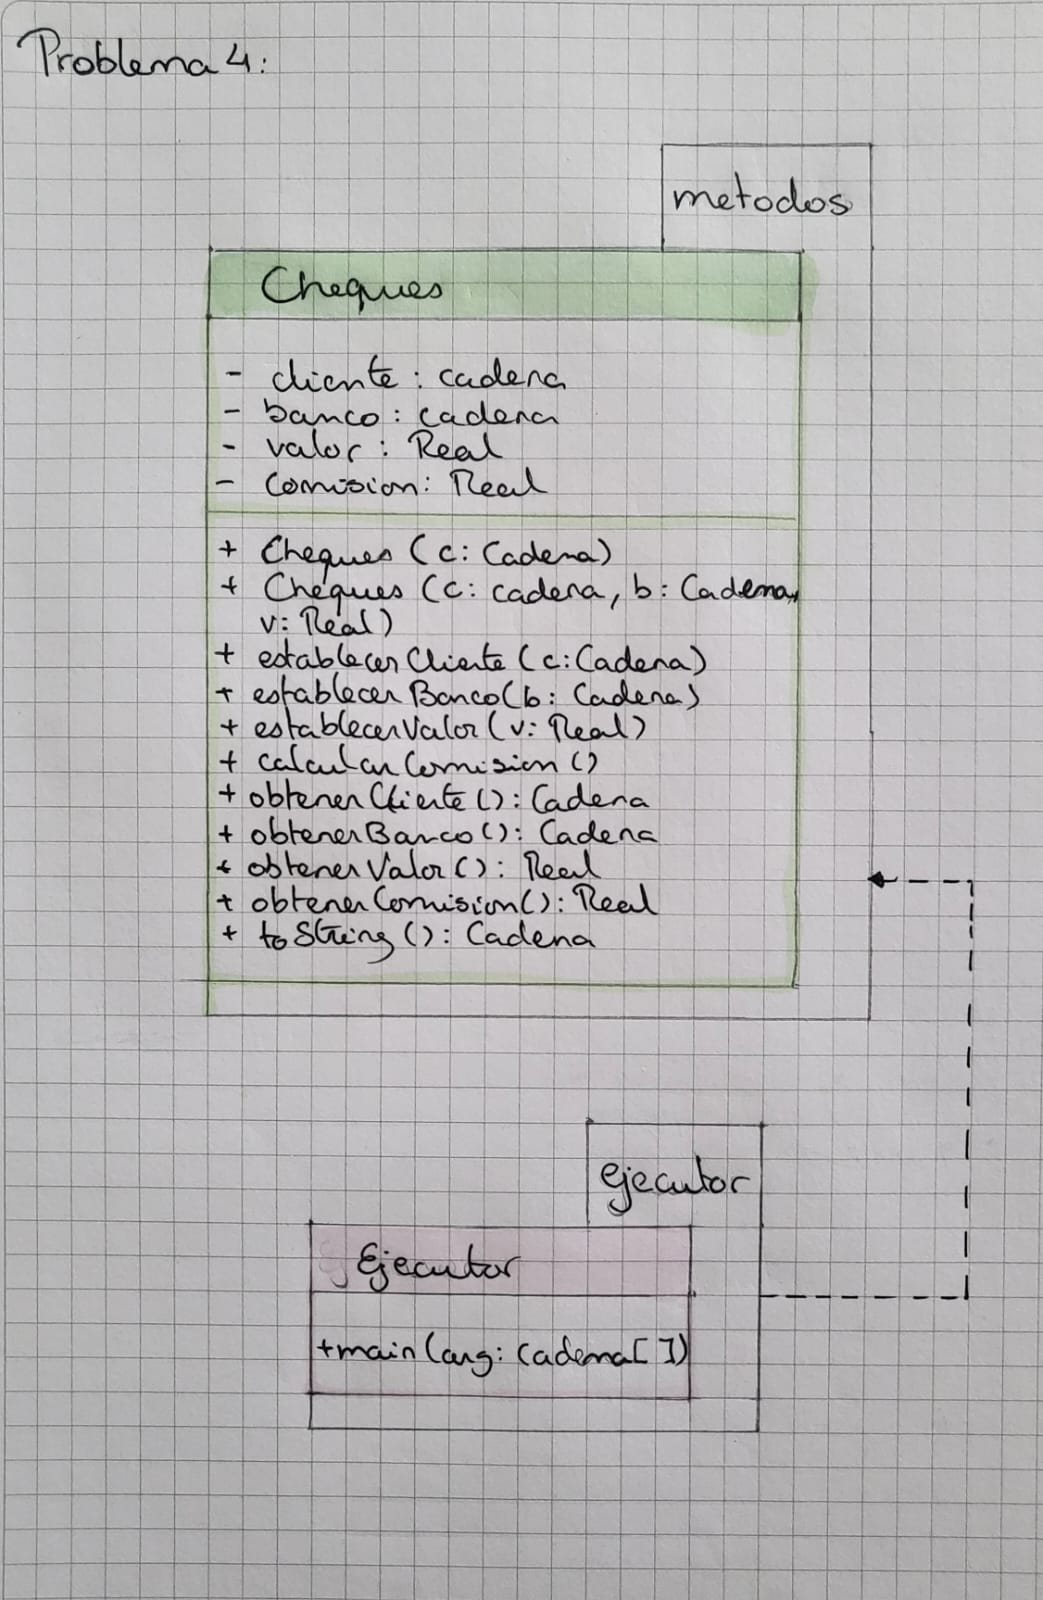 Problema 4:
metodos
Cheques
- cliente : cadena
- banco : cadena
- valor : Real
- Comision : Real
+ Cheques ( c : Cadena)
+ Cheques (c : cadena, b : Cadena,
v : Real)
+ establecer Cliente ( c : Cadena)
+ establecer Banco (b : Cadena)
+ establecer Valor ( v : Real)
+ calcular Comision ()
+ obtener Cliente () : Cadena
+ obtener Banco () : Cadena
+ obtener Valor () : Real
+ obtener Comision () : Real
+ to String () : Cadena
ejecutor
Ejecutor
+main (arg : Cadena[ ])